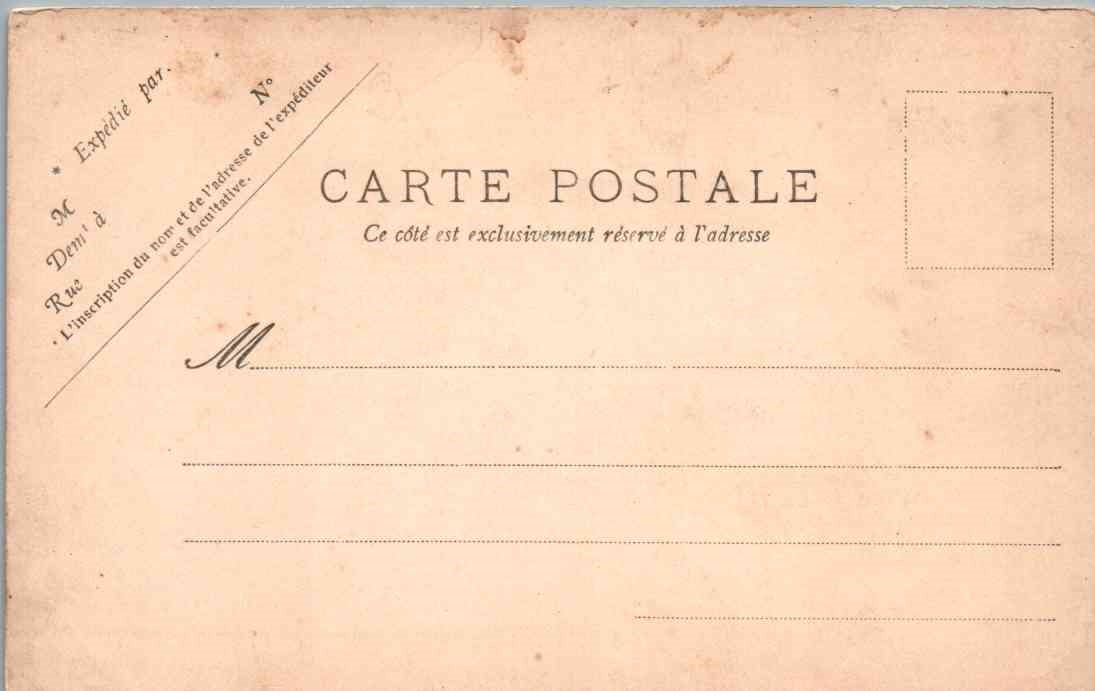 * Expédié par.
M
Dem' à
Rue
N°
* L'inscription du nom et de l'adresse de l'expéditeur
est facultative.
CARTE POSTALE
Ce côté est exclusivement réservé à l'adresse
M